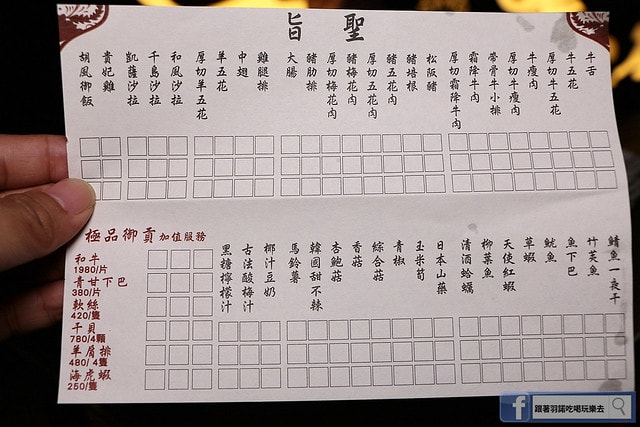 聖旨
牛舌
牛五花
厚切牛五花
牛瘦肉
厚切牛瘦肉
帶骨牛小排
霜降牛肉
厚切霜降牛肉
松阪豬
豬培根
豬五花肉
厚切五花肉
豬梅花肉
厚切梅花肉
豬肋排
大腸
雞腿排
中翅
羊五花
厚切羊五花
和風沙拉
千島沙拉
凱薩沙拉
貴妃雞
胡風御飯
鯖魚一夜干
竹筴魚
魚下巴
魷魚
草蝦
天使紅蝦
柳葉魚
清酒蛤蠣
日本山藥
玉米筍
青椒
綜合菇
香菇
杏鮑菇
韓國甜不辣
馬鈴薯
椰汁豆奶
古法酸梅汁
黑糖檸檬汁
極品御貢 加值服務
和牛
1980/片
青甘下巴
380/片
軟絲
420/隻
干貝
780/4顆
羊肩排
480/4隻
海虎蝦
250/隻
f 跟著羽諾吃喝玩樂去